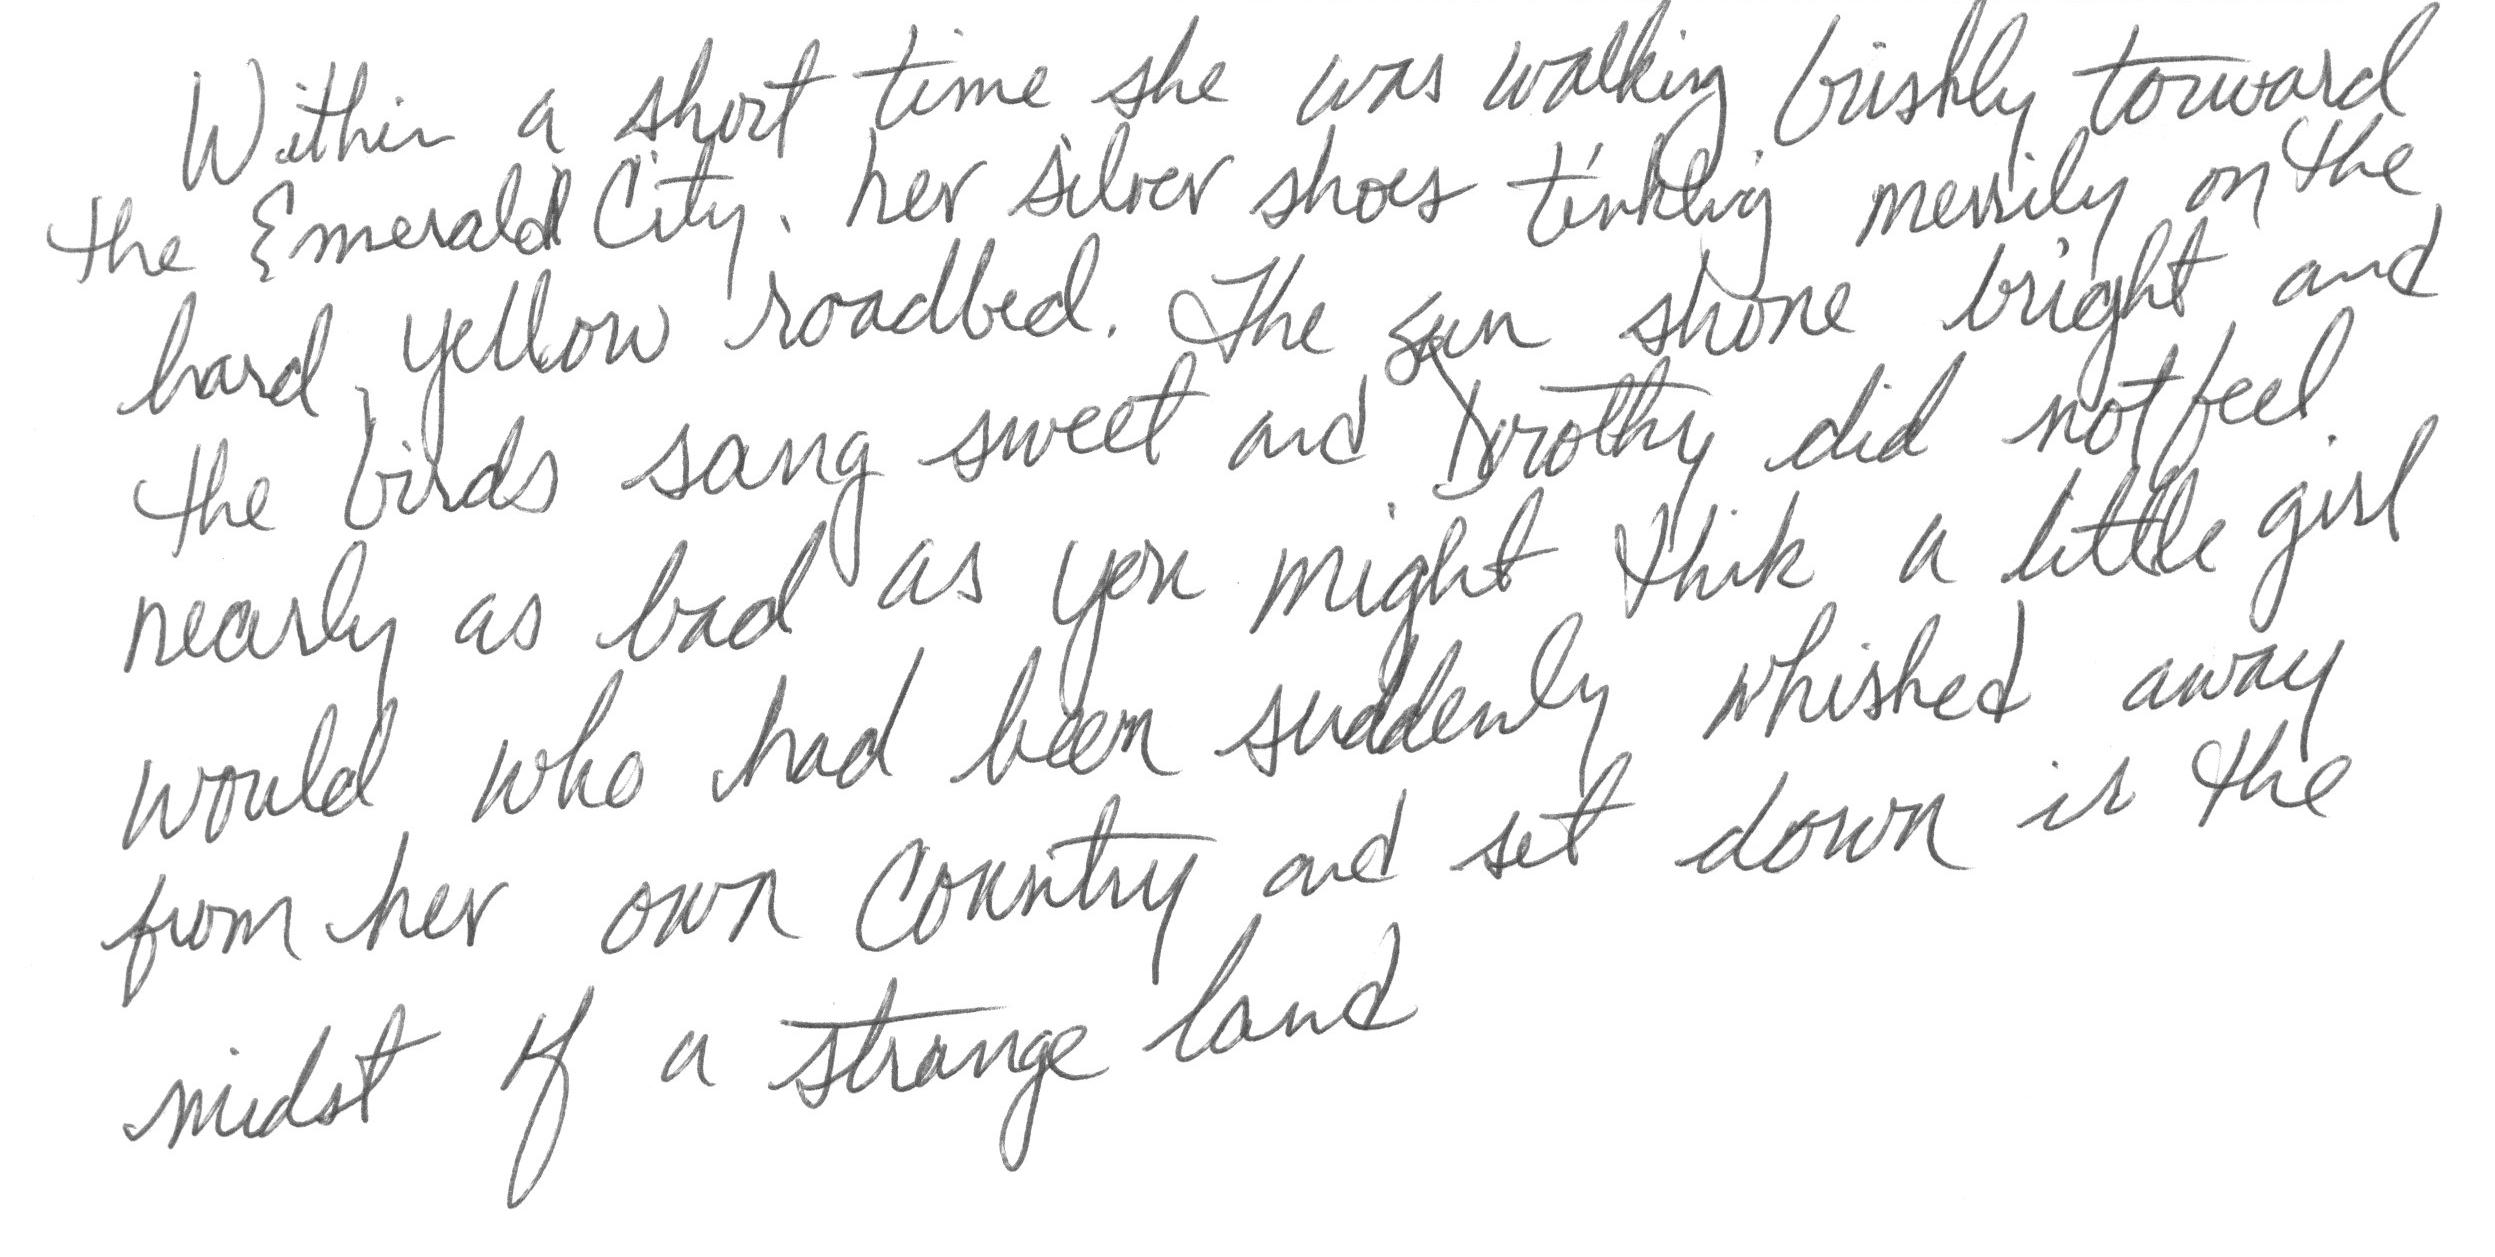 Within a short time she was walking briskly torward
the Emerald City, her silver shoes tinkling merrily on the
hard yellow roadbed. The sun shone bright and
the birds sang sweet and Dorothy did not feel
nearly as bad as you might think a little girl
would who had been suddenly whished away
from her own country and set down in the
midst of a strange land